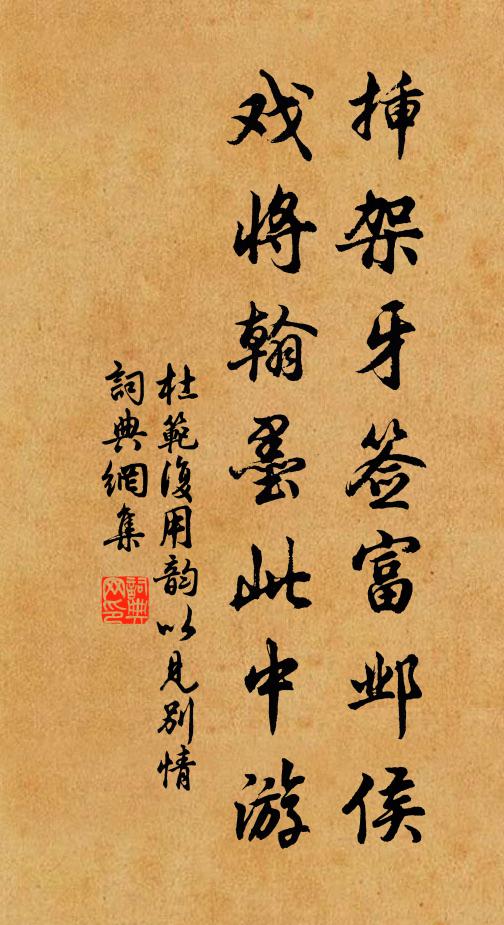 挿架牙签富邺侯
戏将翰墨此中游
杜範復用韵以見别情
詞典網集
詞典網印